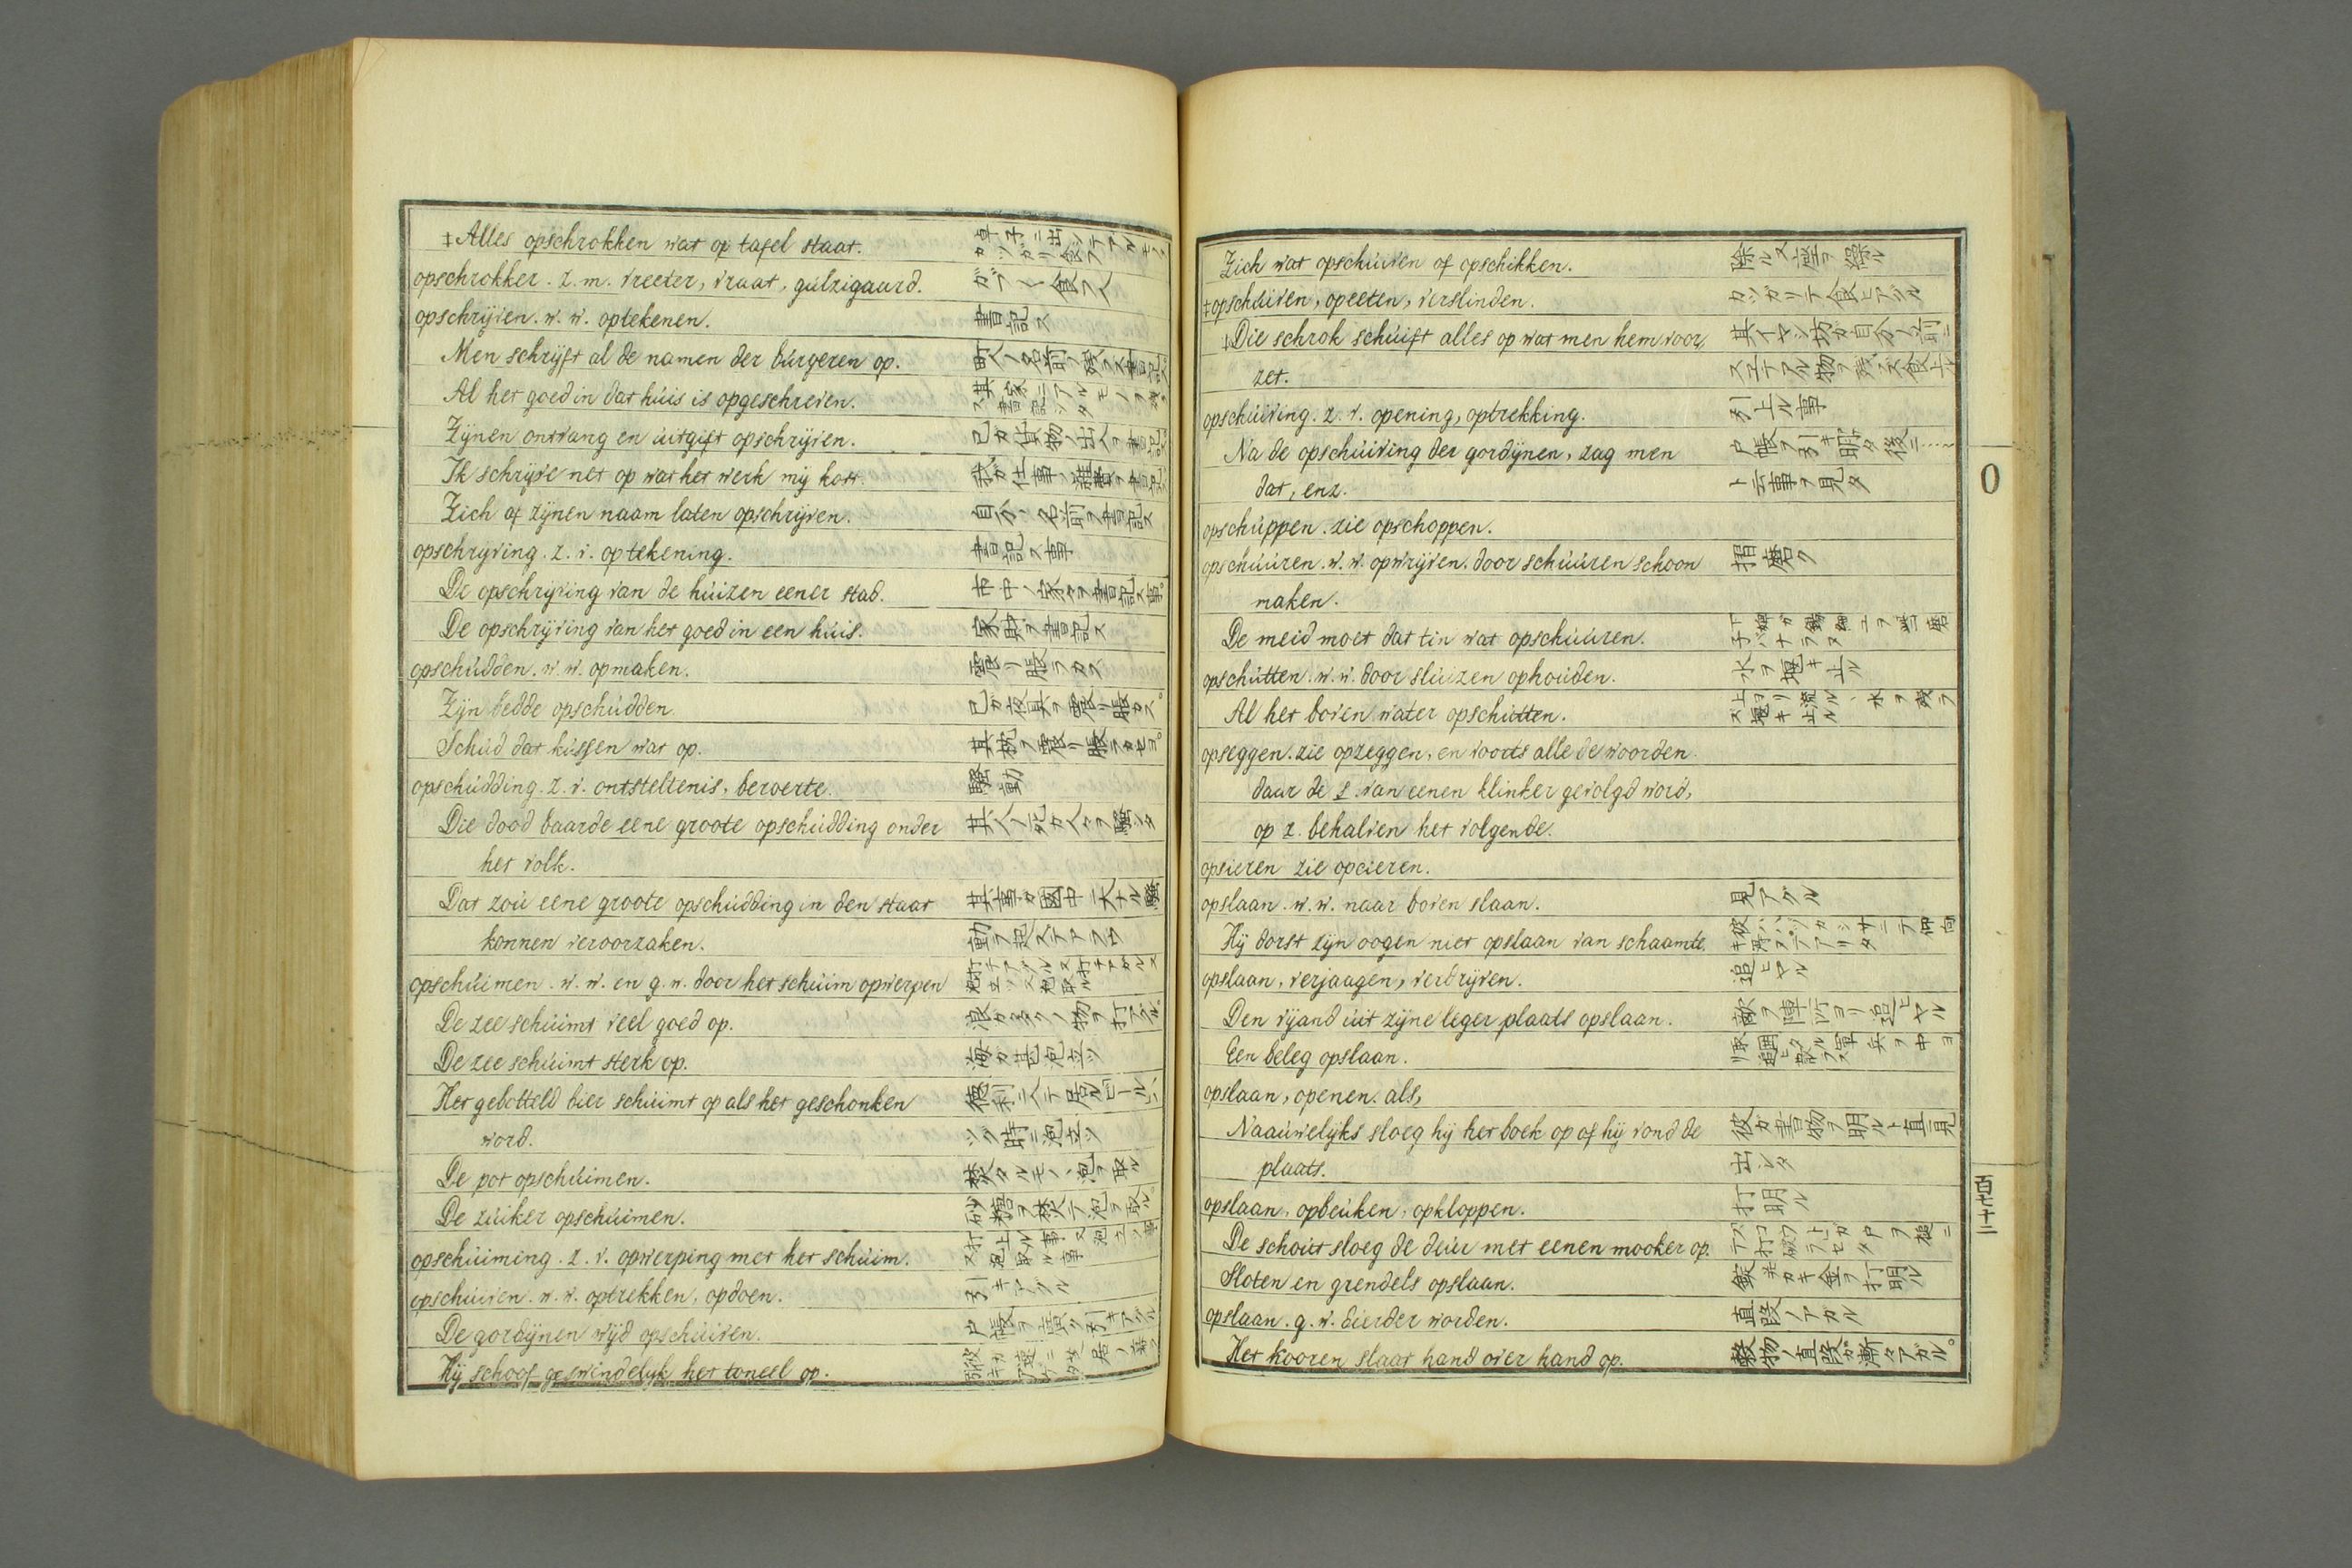 ‡Alles opschrokken wat op tafel staat.
opschrokker. z. m. vreeter, vraat, gúlzigaard. ガブ〱食フ人
opschrijven. w. w. optekenen. 書記ス
Men schrijft al de namen der búrgeren op. 町人ノ名前ノ残ラス書記ス
Al het goed in dat húis is opgeschreven.
Zijnen ontvang en úitgift opschrijven. 己ガ仕物ノ出入ヲ書記ス
Ik schrijve net op wat het werk mij kost. 我ガ仕事ノ雑費ヲ書記ス
Zich of zijnen naam laten opschrijven. 自分ノ名前ヲ書記ス
opschrijving. z. v. optekening. 書記ス事
De opschrijving van de húizen eener stad. 市中ノ家々ヲ書記ス事。
De opschrijving van het goed in een húis. 家財ヲ書記ス
opschúdden. w. w. opmaken. 震リ脹ラカス
Zijn bedde opschúdden. 己ガ夜具ヲ震リ脹カス。
Schúd dat kússen wat op. 其枕ヲ震リ脹ラカセヨ。
opschúdding. z. v. ontsteltenis, beroerte. 騒動
Die dood baarde eene groote opschúdding onder 其人ノ死ガ人々ヲ騒シタ
het volk.
Dat zoú eene groote opschúdding in den staat 其事ガ國中ニ大ナル騒
konnen veroorzaken. 動ヲ起ステアラウ
opschúimen. w. w. en g. w. door het schúim opwerpen
De zee schúimt veel goed op. 浪ガ多クノ物ヲ打アゲル
De zee schúimt sterk op. 海ガ甚泡立ツ
Het gebotteld bier schúimt op als het geschonken 徳利ニ入テ居ルビールハ
word. ツグ時ニ泡立ツ
De pot opschúimen. 焚タルモノヽ泡ヲ取ル
De zúiker opschúimen. 砂糖ヲ焚テ泡ヲ取ル
opschúiming. z. v. opwerping met het schúim.
opschúiven. w. w. optrekken, opdoen. 引キアゲル
De gordijnen wijd opschúiven. 戸帳ヲ廣ク引キアゲル
Hij schoof geswindelijk het toneel op.
Zich wat opschúiven of opschikken.
‡opschúiven, opeeten, verslinden. カツガリテ食ヒアゲル
‡Die schrok schúift alles op wat men hem voor, 其イヤシ坊ガ自分ノ前ニ
zet. スエテアル物ヲ残ラズ食上ル
opschúiving. z. v. opening, optrekking. 引上ル事
Na de opschúiving der gordijnen, zag men 戸帳ヲ引キ明タ後ニ……
dat, enz. ト云事ヲ見タ
opschúppen. zie opschoppen.
opschúúren. w. w. opwrijven. door schúúren schoon 摺磨ク
maken.
De meid moet dat tin wat opschúúren.
opschútten. w. w. door slúizen ophoúden. 水ヲ堰キ止ル
Al het boven water opschútten. 上ヨリ流ルヽ水ヲ残ラズ堰キ止ル
opseggen. zie opzeggen, en voorts alle de woorden
daar de s. van eenen klinker gevolgd word,
op z. behalven het volgende.
opsieren zie opcieren.
opslaan. w. w. naar boven slaan. 見アゲル
Hij dorst zijn oogen niet opslaan van schaamte.
opslaan, verjaagen, verdrijven. 追ヒヤル
Den vijand úit zijne leger plaats opslaan. 敵ヲ陣所ヨリ追ヒヤル
Een beleg opslaan.
opslaan, openen. als,
Naaúwelijks sloeg hij het boek op of hij vond de 彼ガ書物ヲ明ルト直ニ見
plaats. 出シタ
opslaan, opbeúken, opkloppen. 打明ル
De schoút sloeg de deúr met eenen mooker op.
Sloten en grendels opslaan. 錠并カキ金ヲ打明ル
opslaan. g. w. dierder worden. 直段ノアガル
Het kooren slaat hand over hand op. 穀物ノ直段ガ漸々アガル。
O
百七十二